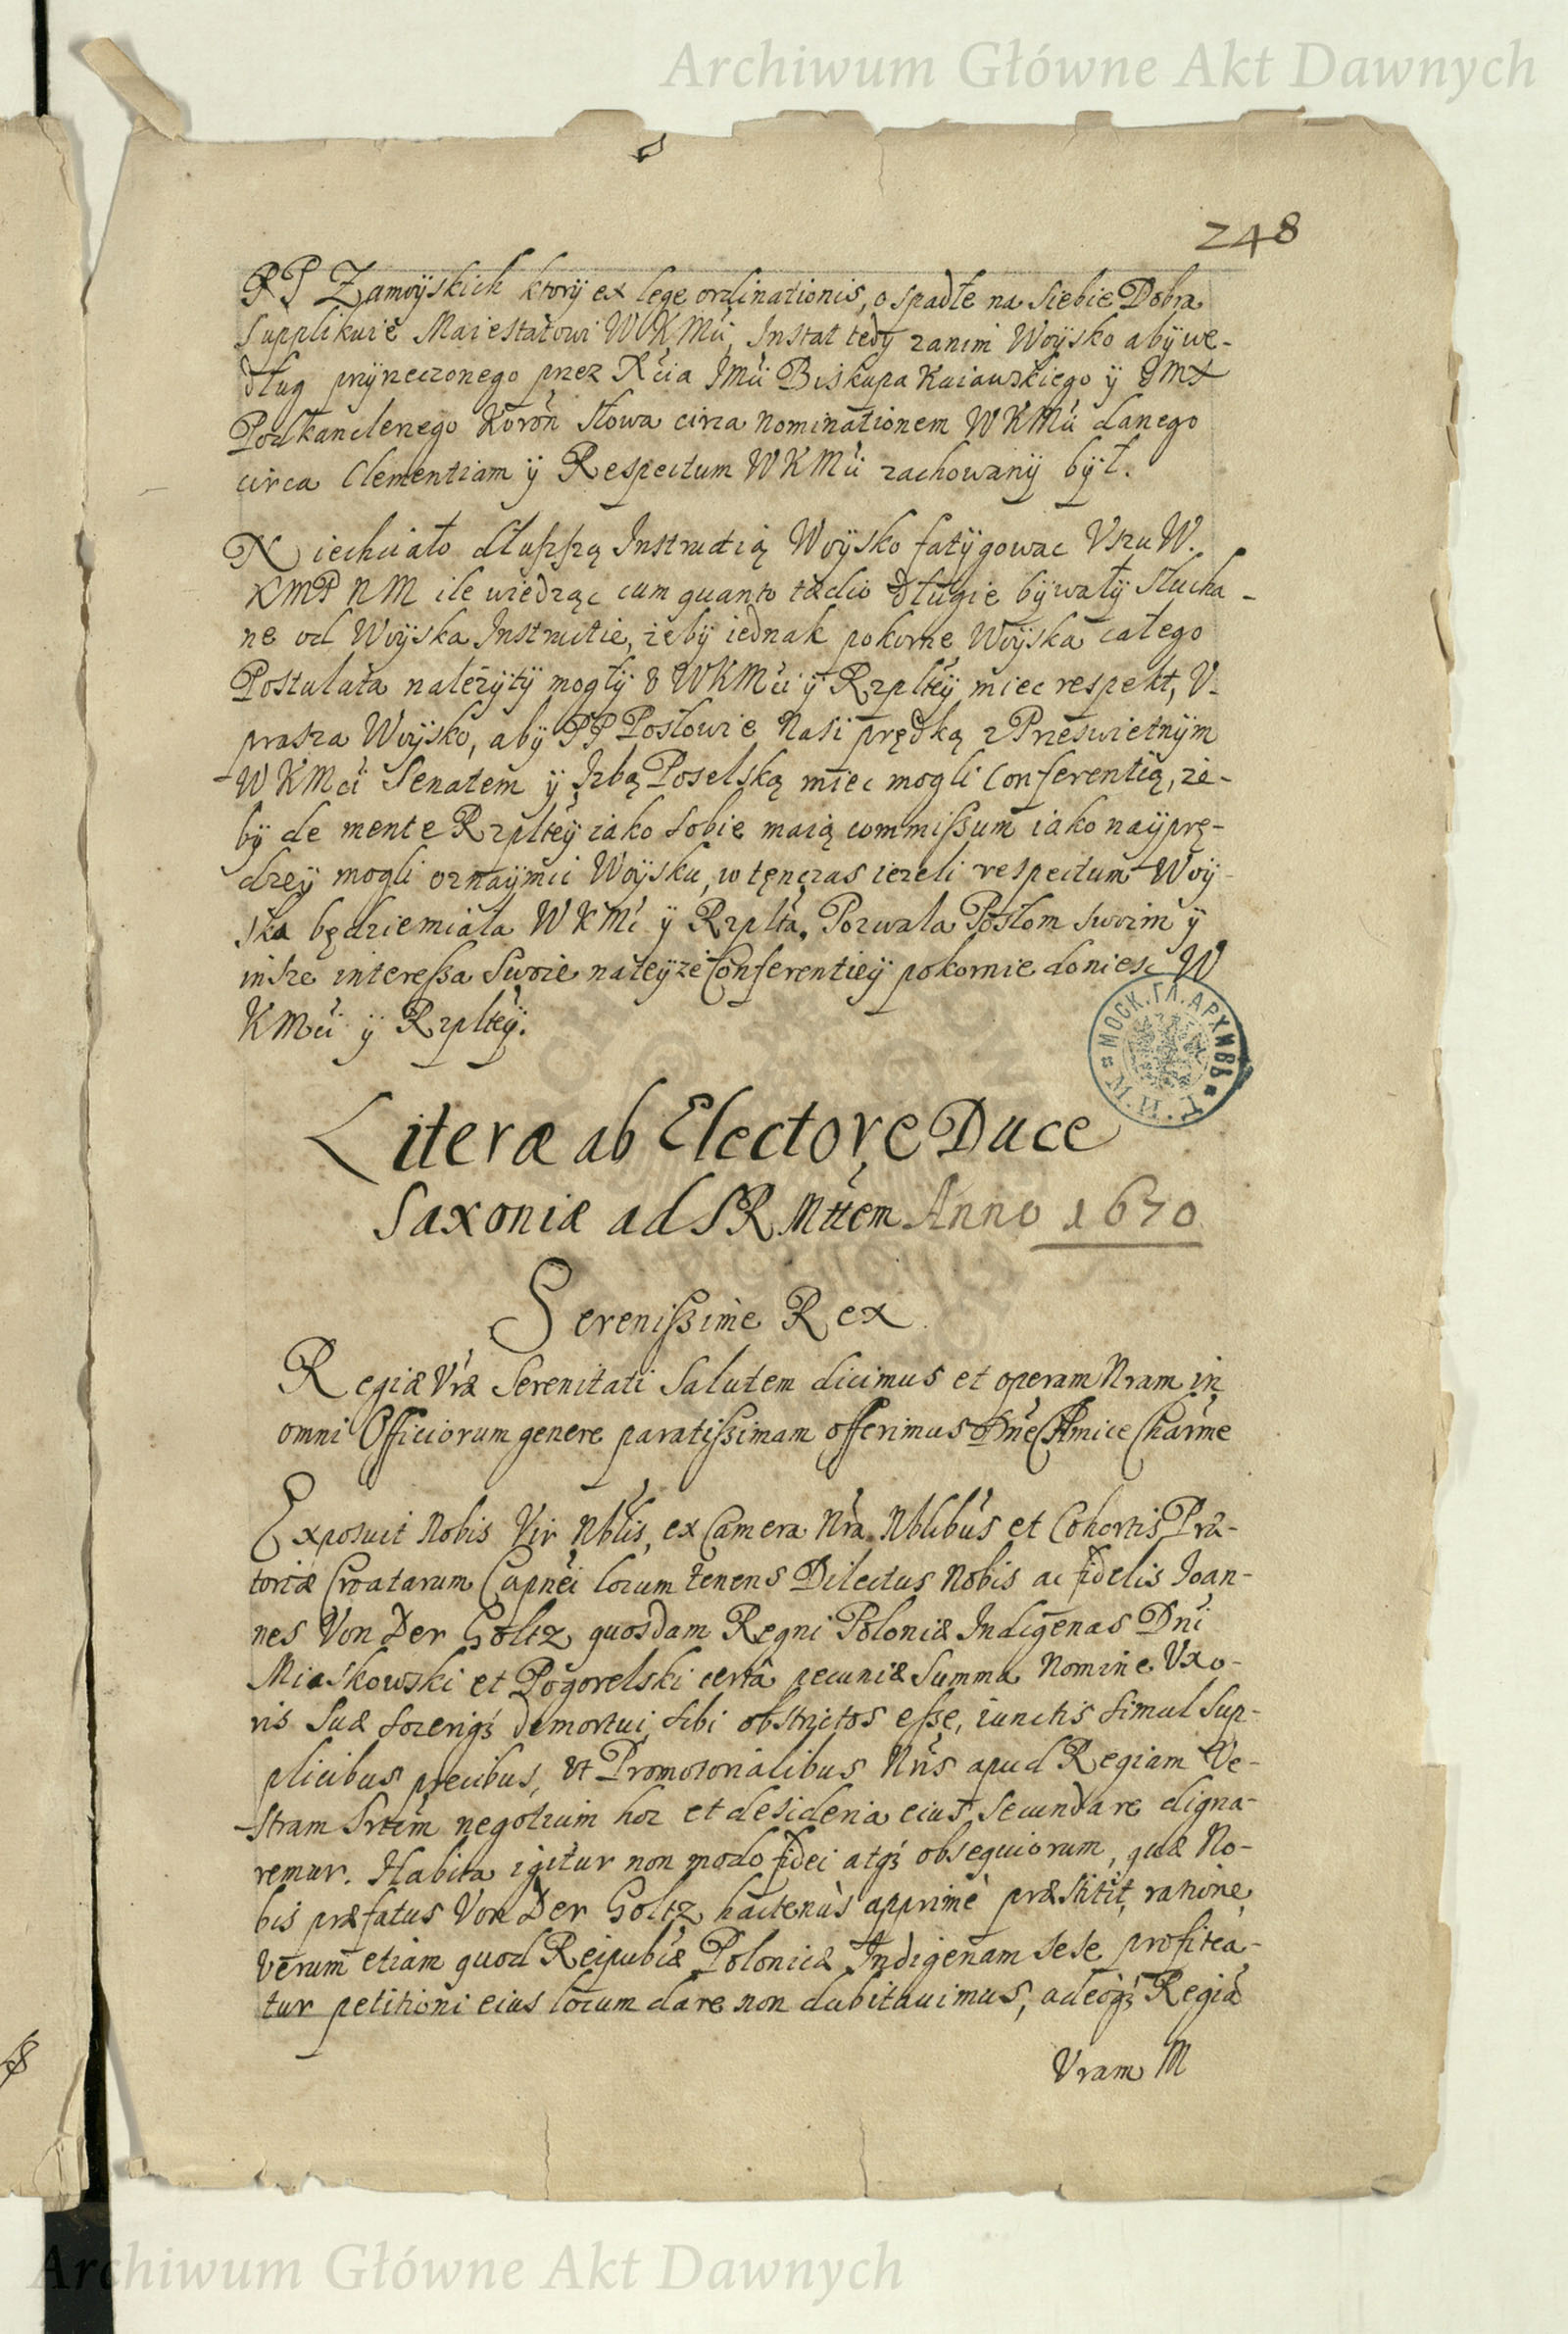 Archiwum Główne Akt Dawnych
248
PP Zamoyskich ktorÿ ex lege ordinationis, o spadłe na siebie Dobra
Supplikuie Maiestatowi WKMći, Instat tedÿ zanim Woÿsko abÿ we-
dług przÿrzeczonego przez Xćia JMći Biskupa Kuiawskiego ÿ JMX
Podkanclerzego Koroń słowa circa nominationem WKMći danego
circa Clementiam ÿ Respectum WKMći zachowanÿ bÿł.
Niechciało dłuſzſzą Instructią Woÿsko fatÿgowac Vszu W.
KMP NM ile wiedząc cum quanto tædio długie bÿwałÿ słucha-
ne od Woÿska Instructie, żebÿ iednak pokorne Woÿska całego
Postulata należÿtÿ mogłÿ v WKMći ÿ Rzpltéÿ miec respekt, V-
prasza Woÿsko, abÿ PP Posłowie Nasi prędką z Przeswietnÿm
WKMći Senatem ÿ Izbą Poselską miec mogli Conferentią, że-
bÿ de mente Rzpltéÿ iako sobie maią commiſsum iako naÿprę-
dzeÿ mogli oznaÿmić Woÿsku, w tęnczas ieżeli respectum Woÿ-
ska będzie miała WKMć ÿ Rzplta. Pozwala Posłom swoim ÿ
insze intereſsa Swoie nateÿże Conferentieÿ pokornie doniesć W
KMći ÿ Rzpltéÿ.
МОСК. ГЛ. АРХИВЪ М.И.Д.
Literæ ab Electore Duce
Saxoniæ ad SR Mttem Anno 1670
Sereniſsime Rex
Regiæ Vræ Serenitati Salutem dicimus et operam Nram in
omni Officiorum genere paratiſsimam offerimus Dne Amice Charme
Exposuit Nobis Vir Nblis, ex Camera Nra Nblibus et Cohortis Præ-
toriæ Croatarum Capnei locum tenens Dilectus Nobis ac fidelis Joan-
nes Von Der Goltz quosdam Regni Poloniæ Indigenas Dni
Miaskowski et Pogorelski certâ pecuniæ Summa Nomine Uxo-
ris Suæ Socerique demortui sibi obstrictos eſse, iunctis simul Sup-
plicibus precibus, ut Promotorialibus Nris apud Regiam Ve-
stram Srtem negotium hoc et desideria eius secundare digna-
remur. Habita igitur non modo fidei atqȝ obsequiorum, quæ No-
bis præfatus Von Der Goltz hactenùs apprimè præstitit, ratione,
verum etiam quod Reipublæ Polonicæ Indigenam sese profitea-
tur petitioni eius locum dare non dubitauimus, adeoqȝ Regiã
Vram M
Archiwum Główne Akt Dawnych